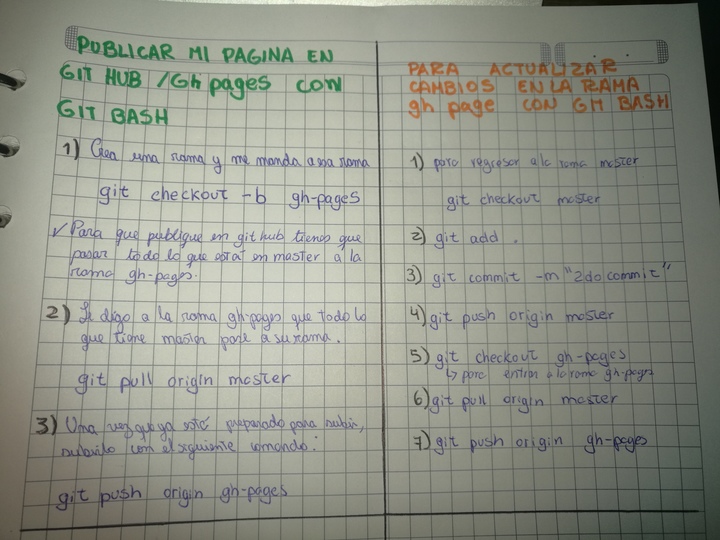 PUBLICAR MI PAGINA EN
GIT HUB /Gh pages con
GIT BASH
1) Crea una rama y me manda a esa rama
git checkout -b gh-pages
✓ Para que publique en git hub tienes que
pasar todo lo que está en master a la
rama gh-pages.
2) Le digo a la rama gh-pages que todo lo
que tiene master pase a su rama.
git pull origin master
3) Una vez que ya esté preparado para subir,
subirlo con el siguiente comando:
git push origin gh-pages
PARA ACTUALIZAR
CAMBIOS EN LA RAMA
gh page CON GIT BASH
1) para regresar a la rama master
git checkout master
2) git add .
3) git commit -m "2do commit"
4) git push origin master
5) git checkout gh-pages
↳ para entrar a la rama gh-pages
6) git pull origin master
7) git push origin gh-pages